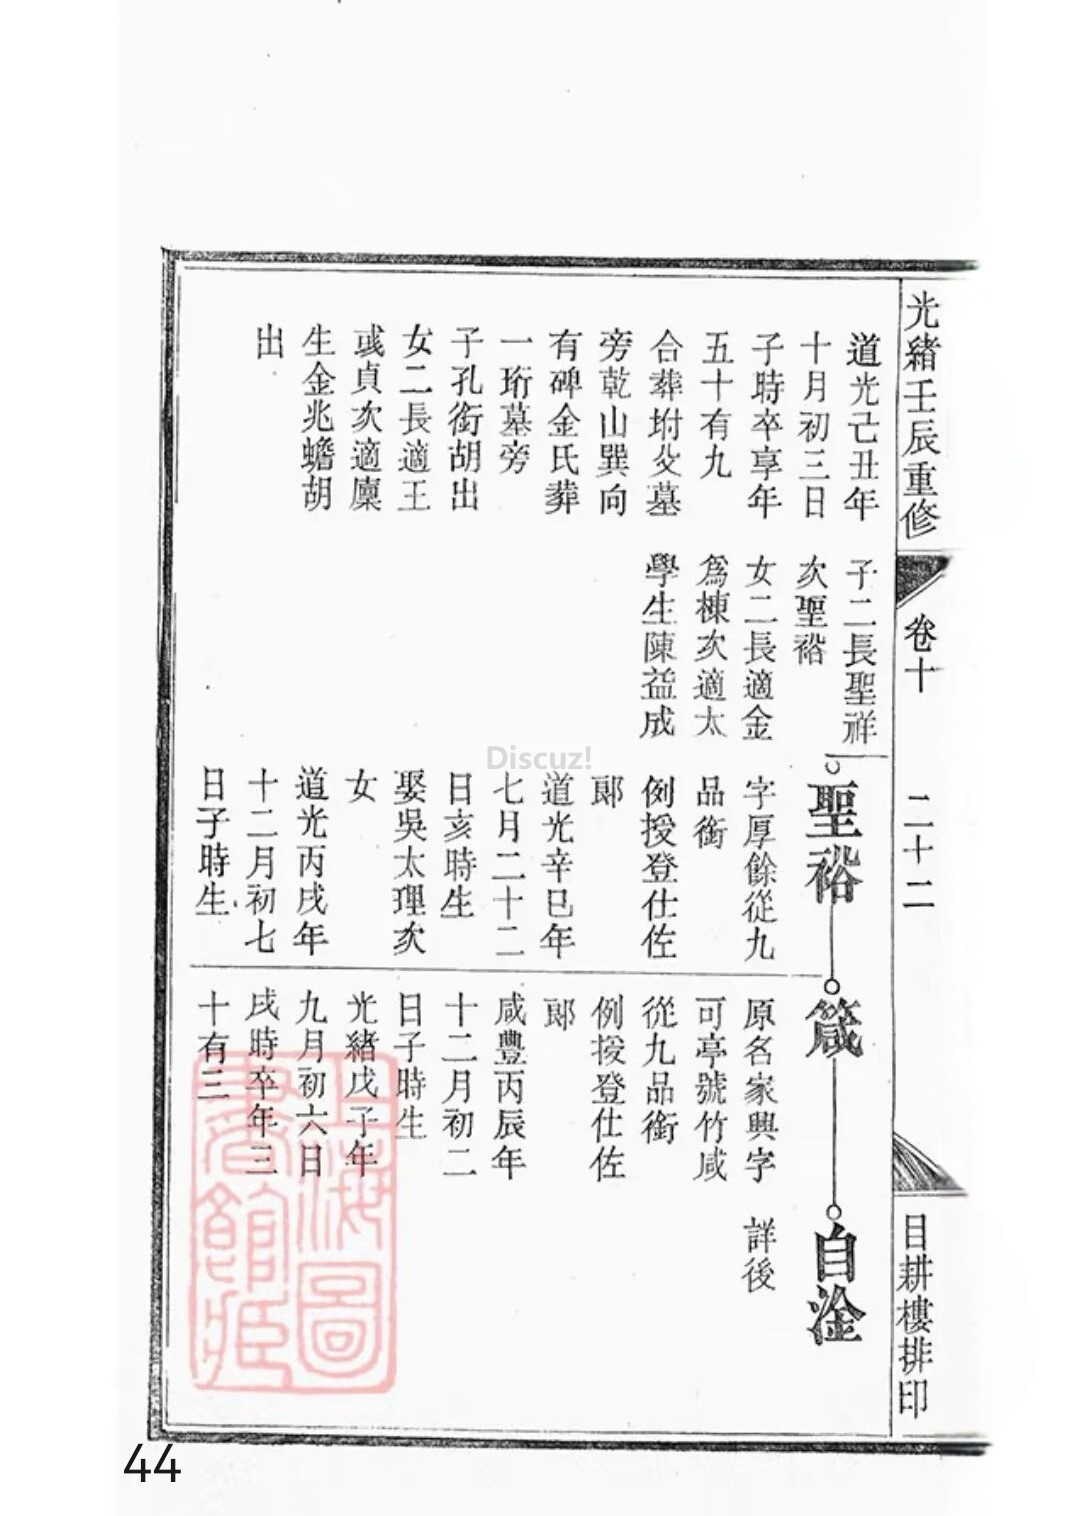 光緒壬辰重修
卷十
二十二
目耕樓排印
道光己丑年
十月初三日
子時卒享年
五十有九
合葬坿父墓
旁乾山巽向
有碑金氏葬
一珩墓旁
子孔銜胡出
女二長適王
彧貞次適廩
生金兆蟾胡
出
子二長聖祥
次聖裕
女二長適金
爲棟次適太
學生陳益成
聖裕
字厚餘從九
品銜
例授登仕佐
郞
道光辛巳年
七月二十二
日亥時生
娶吳太理次
女
道光丙戌年
十二月初七
日子時生
箴
原名家興字
可亭號竹咸
從九品銜
例授登仕佐
郞
咸豐丙辰年
十二月初二
日子時生
光緒戊子年
九月初六日
戌時卒年三
十有三
自淦
詳後
上海圖
書館藏
Discuz!
44